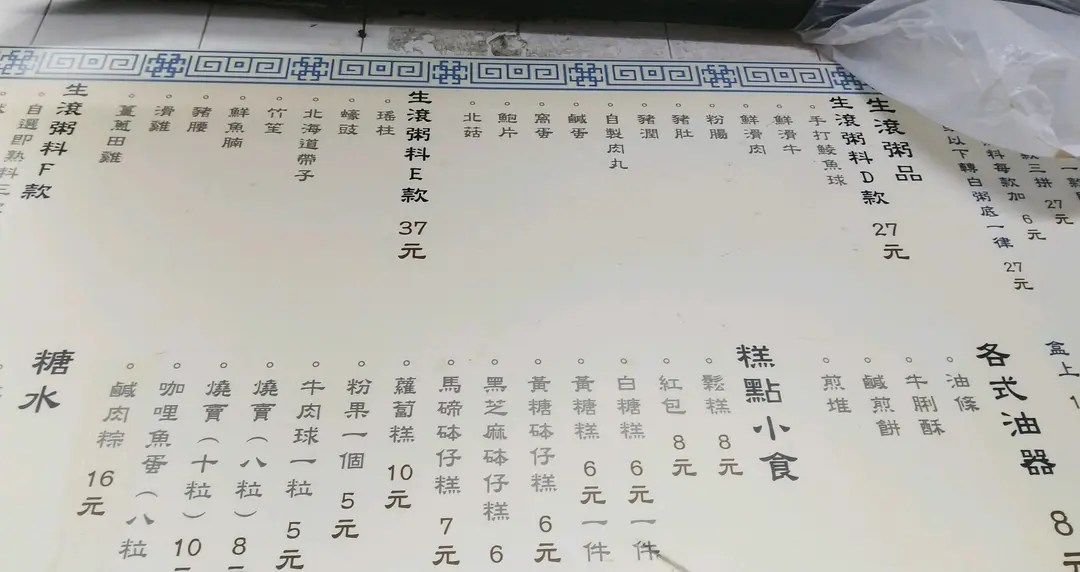 一款
款三拼 27元
料每款加 6元
以下轉白粥底一律 27元
生滾粥品
生滾粥料D款 27元
手打鯪魚球
鮮滑牛
鮮滑肉
粉腸
豬肚
豬潤
自製肉丸
鹹蛋
窩蛋
鮑片
北菇
生滾粥料E款 37元
瑤柱
蠔豉
北海道帶子
竹笙
鮮魚腩
豬腰
滑雞
薑蔥田雞
生滾粥料F款
自選即熟料三
盒上
各式油器 8元
油條
牛脷酥
鹹煎餅
煎堆
糕點小食
鬆糕 8元
紅包 8元
白糖糕 6元一件
黃糖糕 6元一件
黃糖砵仔糕 6元
黑芝麻砵仔糕 6
馬碲砵仔糕 7元
蘿蔔糕 10元
粉果一個 5元
牛肉球一粒 5元
燒賣(八粒) 8
燒賣(十粒) 10
咖哩魚蛋(八粒
鹹肉粽 16元
糖水